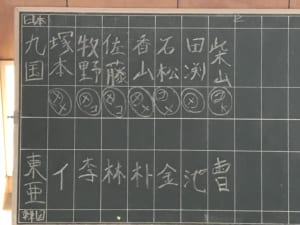 日本
九国
塚本
牧野
佐藤
香山
石松
田渕
柴山
東亜
イ
李
林
朴
金
池
曺
韓国